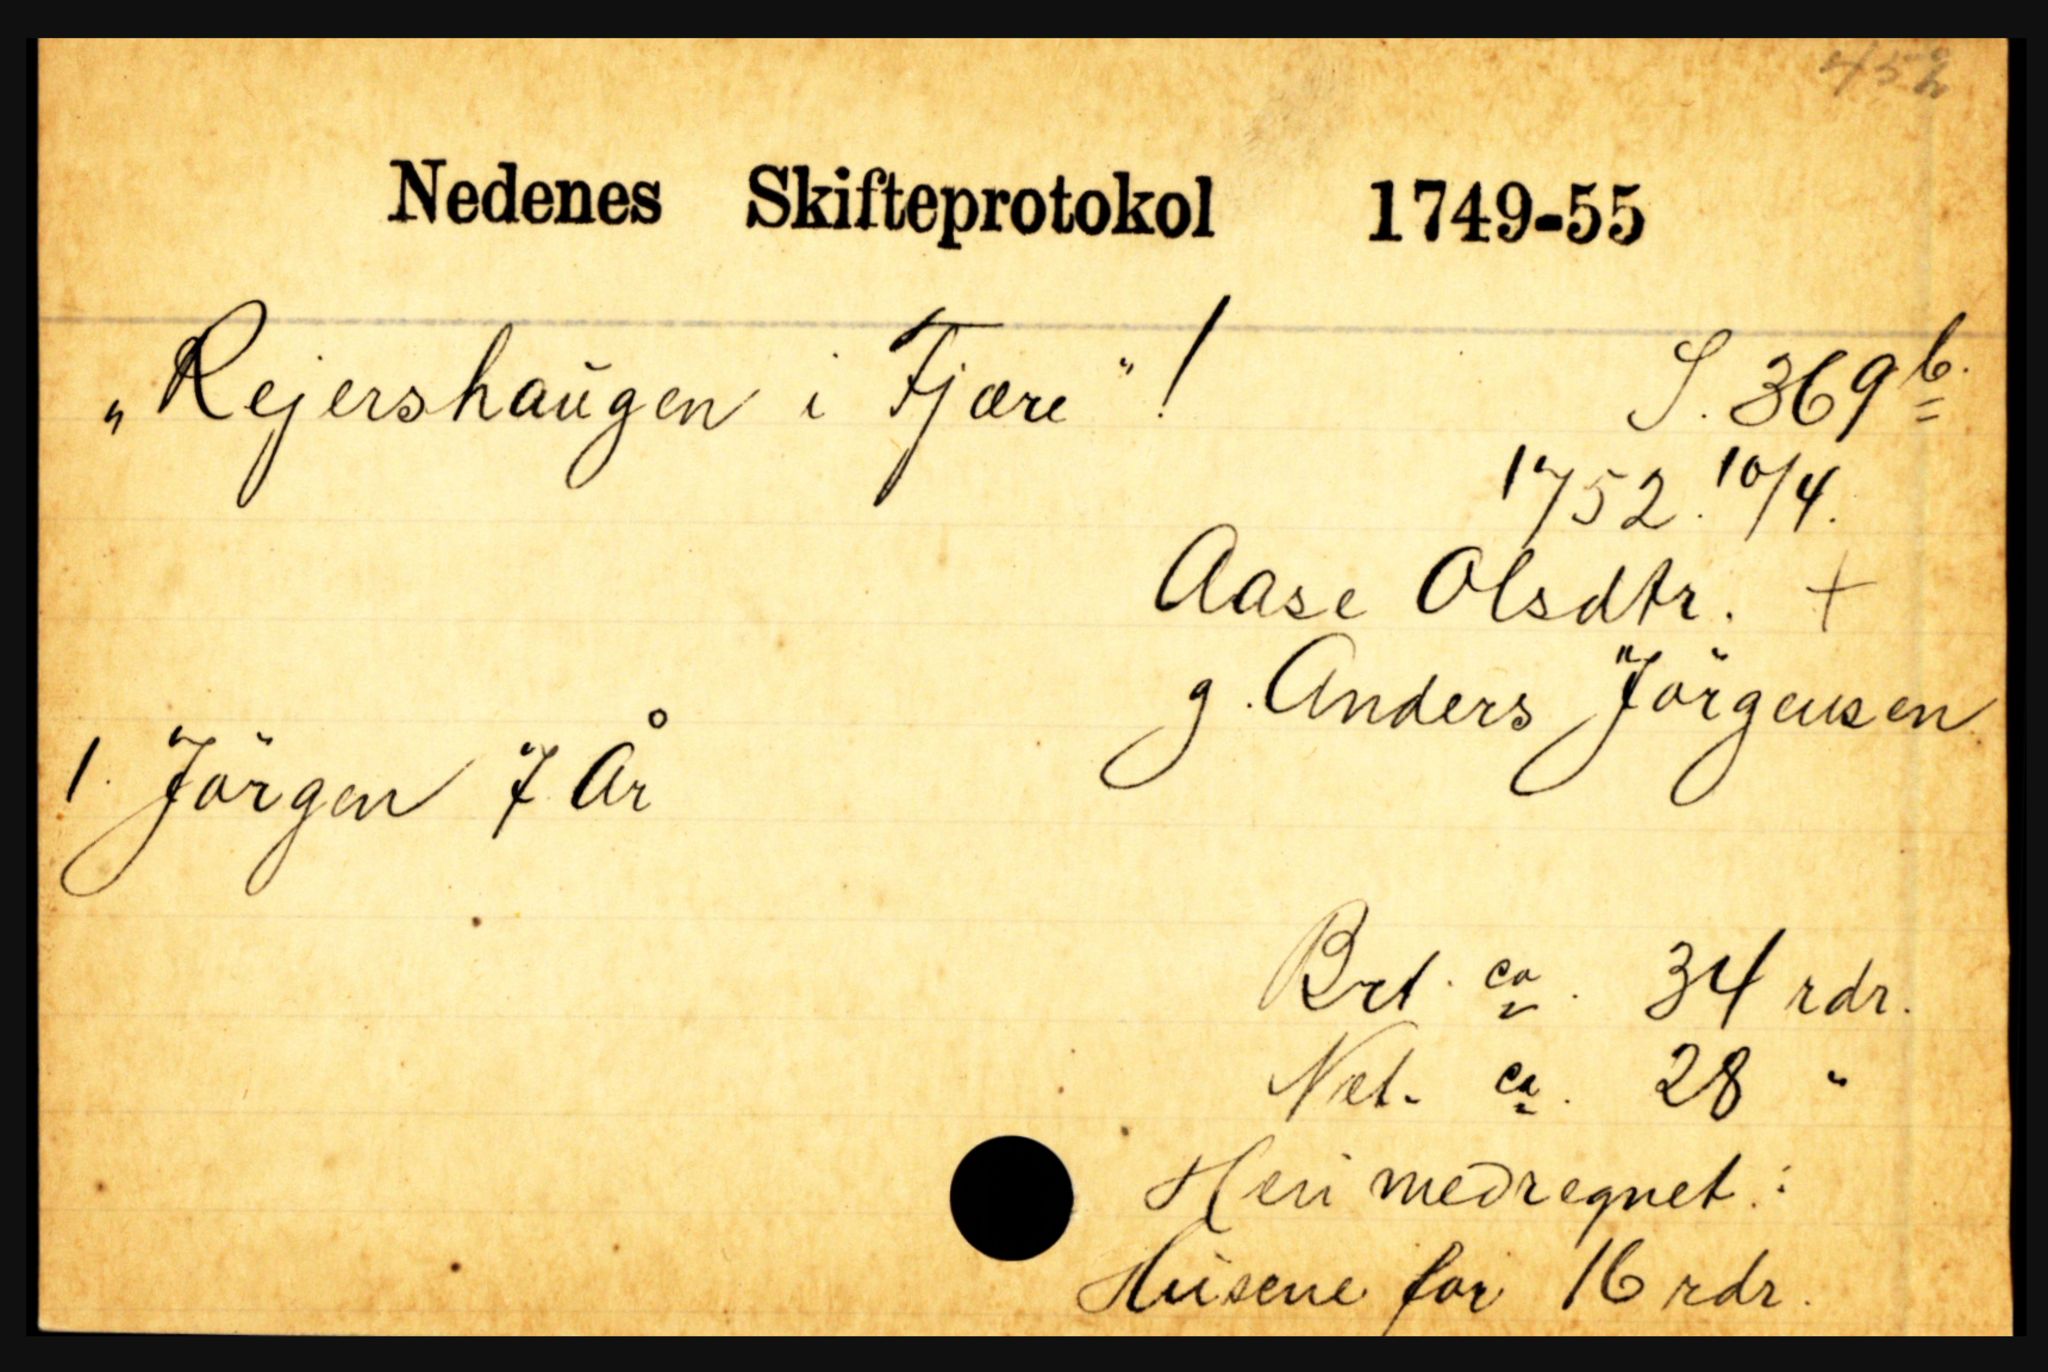 Nedenes Skifteprotokol 1749-55
„Rejershaugen i Fjære" ! S. 369 b.
1752. 10/4.
Aase Olsdtr. +
g. Anders Jörgensen
1. Jörgen 7 År
Brt. ca. 34 rdr.
Net. ca. 28 "
Heri medregnet:
Husene for 16 rdr.